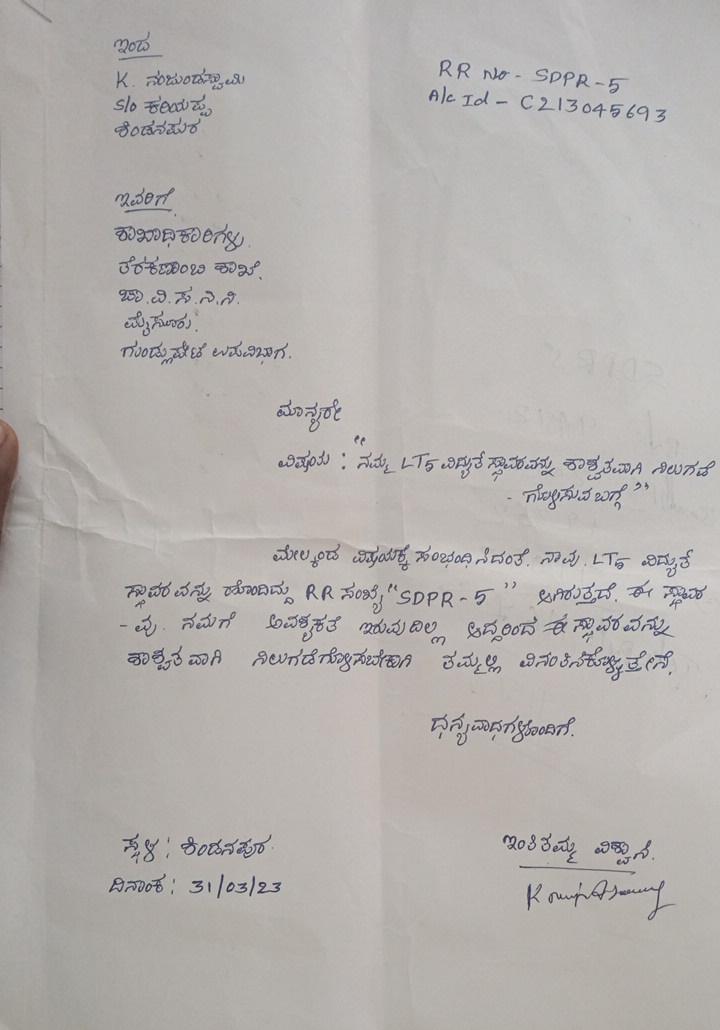 ಇಂದ
K. ನಂಜುಂಡಸ್ವಾಮಿ
S/o ಕರಿಯಪ್ಪ
ಶಿಂಡನಪುರ
RR No - SDPR-5
A/c Id - C213045693
ಇವರಿಗೆ
ಶಾಖಾಧಿಕಾರಿಗಳು.
ತೆರಕಣಾಂಬಿ ಶಾಖೆ.
ಚಾ.ವಿ.ಸ.ನಿ.ನಿ.
ಮೈಸೂರು.
ಗುಂಡ್ಲುಪೇಟೆ ಉಪವಿಭಾಗ.
ಮಾನ್ಯರೇ
ವಿಷಯ : "ನಮ್ಮ LT5 ವಿದ್ಯುತ್ ಸ್ಥಾವರವನ್ನು ಶಾಶ್ವತವಾಗಿ ನಿಲುಗಡೆ
- ಗೊಳಿಸುವ ಬಗ್ಗೆ"
ಮೇಲ್ಕಂಡ ವಿಷಯಕ್ಕೆ ಸಂಭಂಧಿಸಿದಂತೆ. ನಾವು. LT5 ವಿದ್ಯುತ್
ಸ್ಥಾವರವನ್ನು ಹೊಂದಿದ್ದು RR ಸಂಖ್ಯೆ "SDPR-5" ಆಗಿರುತ್ತದೆ. ಈ ಸ್ಥಾವರ
- ವು. ನಮಗೆ ಅವಶ್ಯಕತೆ ಇರುವುದಿಲ್ಲ ಆದ್ದರಿಂದ ಈ ಸ್ಥಾವರವನ್ನು
ಶಾಶ್ವತವಾಗಿ ನಿಲುಗಡೆಗೊಳಿಸಬೇಕಾಗಿ ತಮ್ಮಲ್ಲಿ ವಿನಂತಿಸಿಕೊಳ್ಳುತ್ತೇನೆ.
ಧನ್ಯವಾಧಗಳೊಂದಿಗೆ.
ಸ್ಥಳ : ಶಿಂಡನಪುರ
ದಿನಾಂಕ : 31/03/23
ಇಂತಿ ತಮ್ಮ ವಿಶ್ವಾಸಿ.